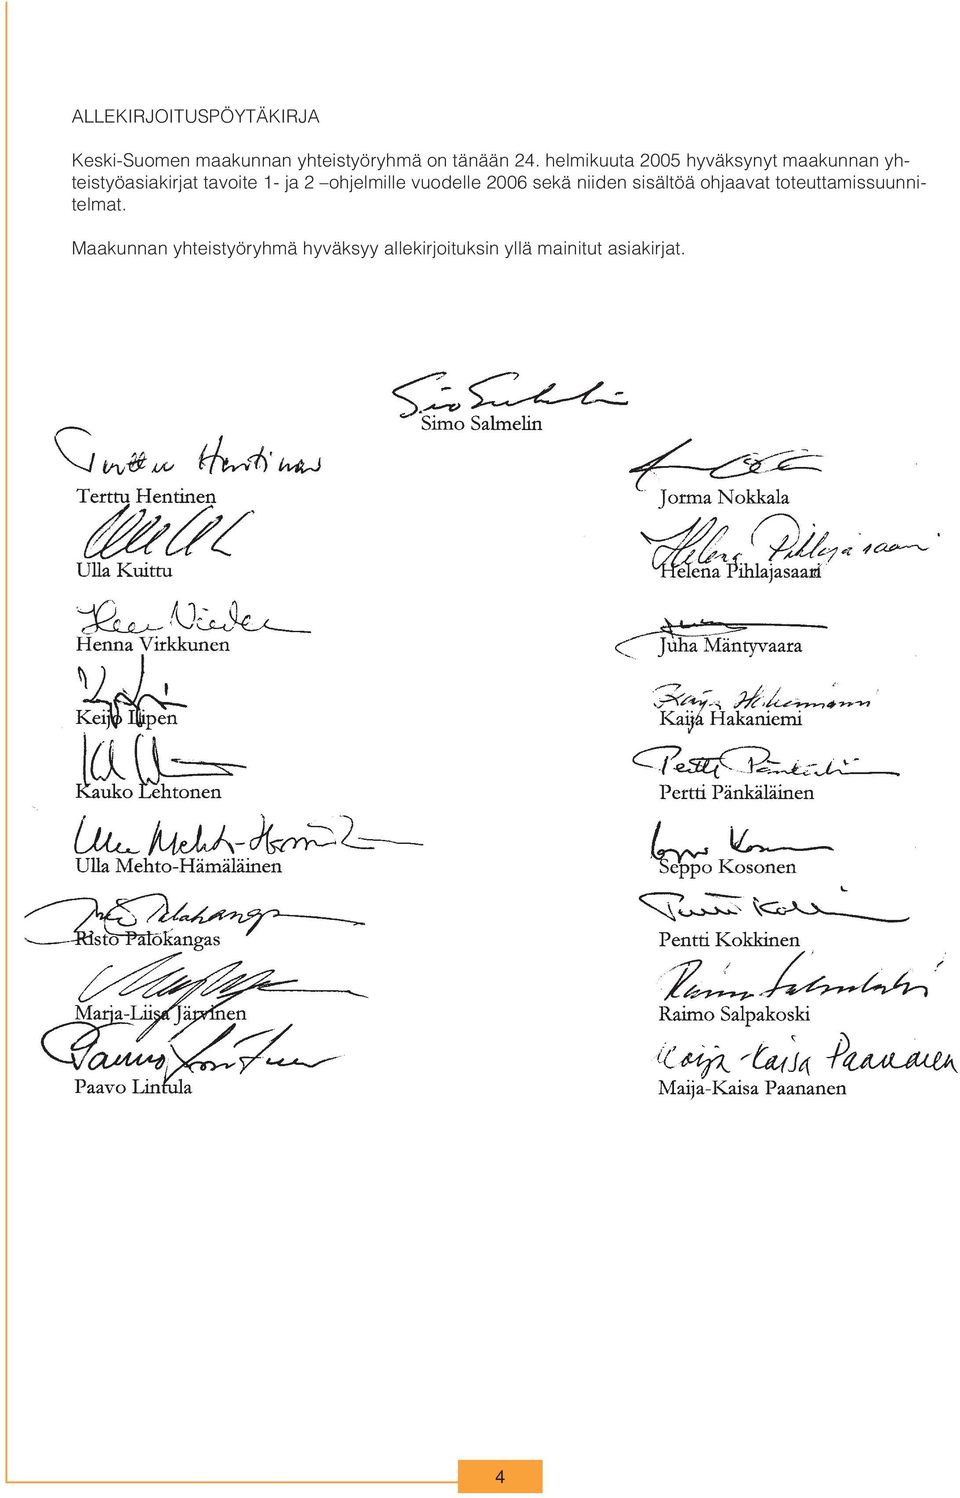 ALLEKIRJOITUSPÖYTÄKIRJA
Keski-Suomen maakunnan yhteistyöryhmä on tänään 24. helmikuuta 2005 hyväksynyt maakunnan yh-
teistyöasiakirjat tavoite 1- ja 2 –ohjelmille vuodelle 2006 sekä niiden sisältöä ohjaavat toteuttamissuunni-
telmat.
Maakunnan yhteistyöryhmä hyväksyy allekirjoituksin yllä mainitut asiakirjat.
Simo Salmelin
Terttu Hentinen
Terttu Hentinen
Jorma Nokkala
Ulla Kuittu
Helena Pihlajasaari
Helena Pihlajasaari
Henna Virkkunen
Juha Mäntyvaara
Keijo
Kaija Hakaniemi
Kauko Lehtonen
Pertti Pänkäläinen
Ulla Mehto-Hämäläinen
Seppo Kosonen
Risto Palokangas
Pentti Kokkinen
Marja-Liisa Järvinen
Raimo Salpakoski
Maija-Kaisa Paananen
Paavo Lintula
Maija-Kaisa Paananen
4